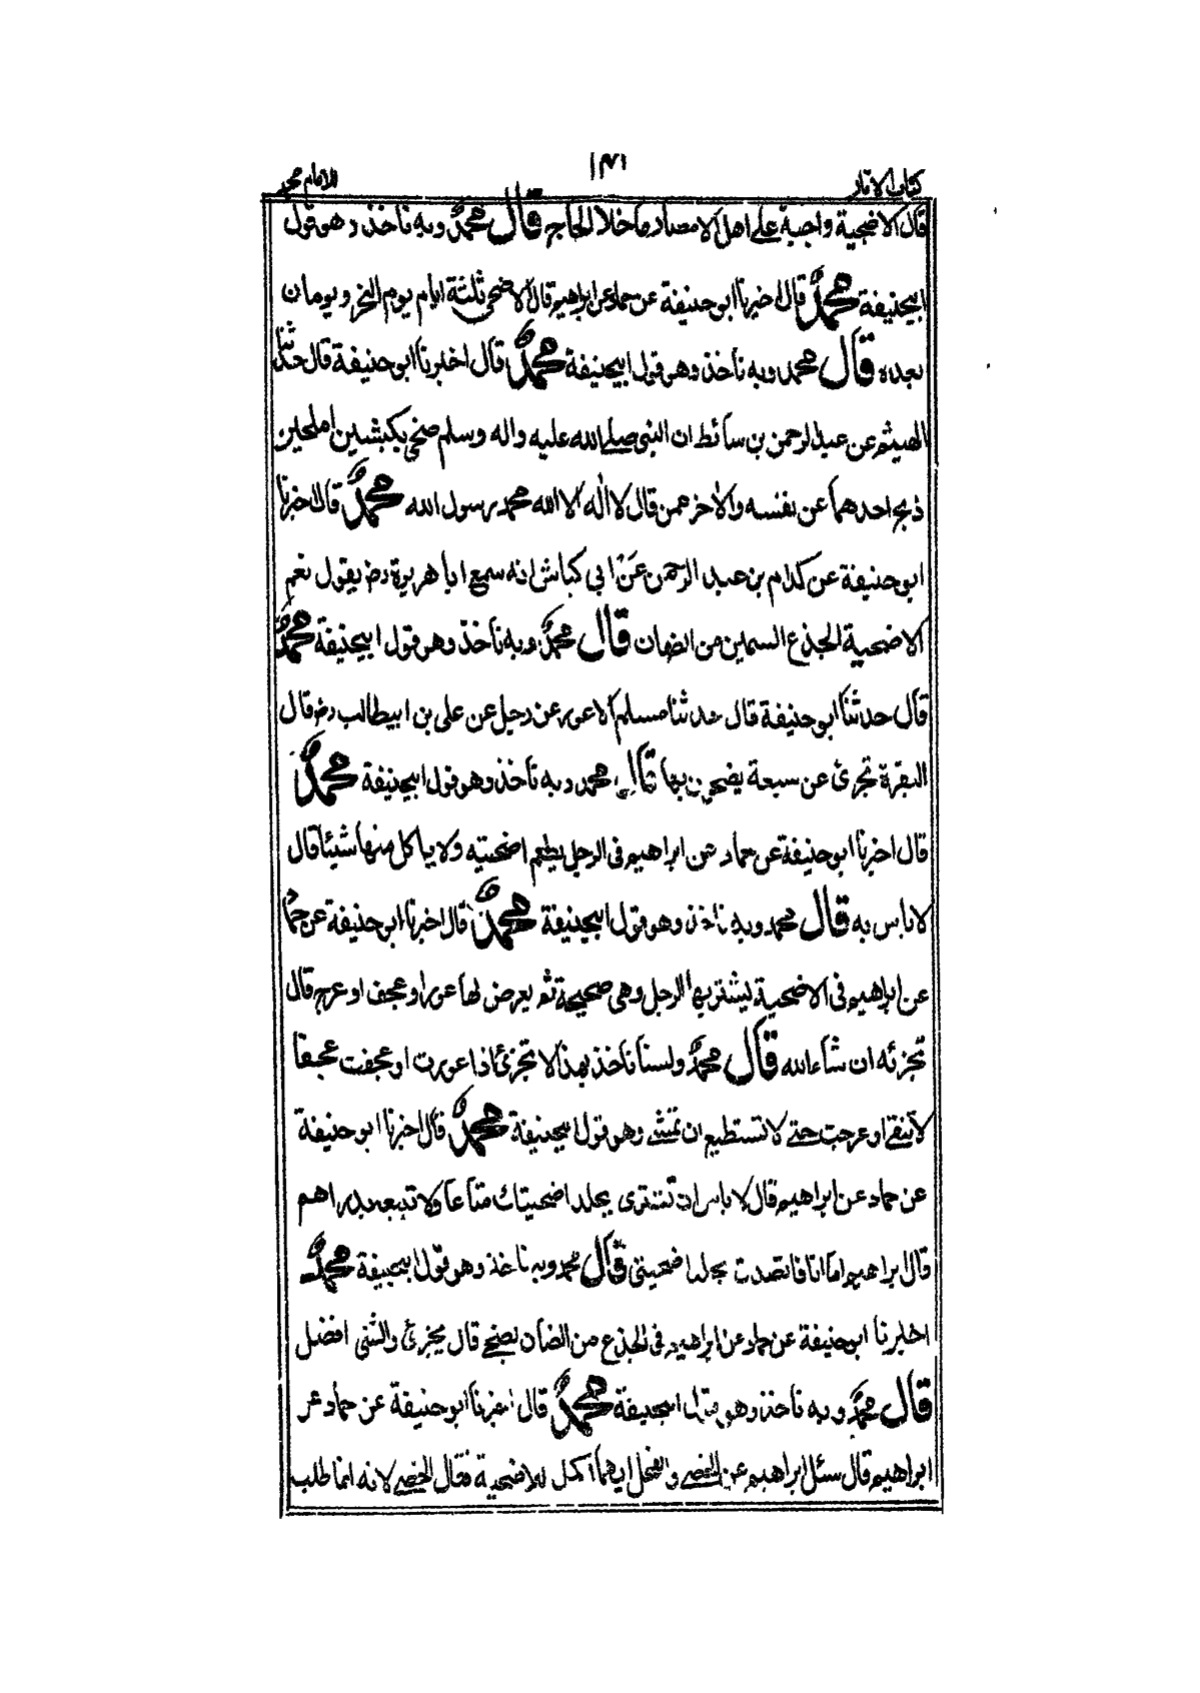 كتاب الاثار ١٣١ للامام محمد
قال الاضحية واجبة على اهل الامصار ما خلا الحاج قال محمد وبه ناخذ وهو قول
ابيحنيفة محمد قال اخبرنا ابو حنيفة عن حماد عن ابراهيم قال الاضحى ثلثة ايام يوم النحر ويومان
بعده قال محمد وبه ناخذ وهو قول ابيحنيفة محمد قال اخبرنا ابو حنيفة قال حدثنا
الهيثم عن عبد الرحمن بن سائط ان النبي صلى الله عليه واله وسلم ضحى بكبشين املحين
ذبح احدهما عن نفسه والاخر عمن قال لا اله الا الله محمد رسول الله محمد قال اخبرنا
ابو حنيفة عن كدام بن عبد الرحمن عن ابي كباش انه سمع ابا هريرة رض يقول نعم
الاضحية الجذع السمين من الضان قال محمد وبه ناخذ وهو قول ابيحنيفة محمد
قال حدثنا ابو حنيفة قال حدثنا مسلم الاعور عن رجل عن على بن ابيطالب رض قال
البقرة تجزئ عن سبعة يضحون بها قال محمد وبه ناخذ وهو قول ابيحنيفة محمد
قال اخبرنا ابو حنيفة عن حماد عن ابراهيم فى الرجل يطعم اضحيته ولا ياكل منها شيئا قال
لا باس به قال محمد وبه ناخذ وهو قول ابيحنيفة محمد قال اخبرنا ابو حنيفة عن حماد
عن ابراهيم فى الاضحية ليشتريها الرجل وهى صحيحة ثم يعرض لها عور او عجف او عرج قال
تجزئه ان شاء الله قال محمد ولسنا ناخذ بهذا لا تجزئ اذا عورت او عجفت عجفا
لا تنقى او عرجت حتى لا تستطيع ان تمشى وهو قول ابيحنيفة محمد قال اخبرنا ابو حنيفة
عن حماد عن ابراهيم قال لا باس ان تشترى بجلد اضحيتك متاعا ولا تبعه بدراهم
قال ابراهيم اما انا فاتصدق بجلد اضحيتى قال محمد وبه ناخذ وهو قول ابيحنيفة محمد
اخبرنا ابو حنيفة عن حماد عن ابراهيم فى الجذع من الضان يضحى قال يجزئ والثنى افضل
قال محمد وبه ناخذ وهو قول ابيحنيفة محمد قال اخبرنا ابو حنيفة عن حماد عن
ابراهيم قال سئل ابراهيم عن الخصى والفحل ايهما اكمل للاضحية فقال الخصى لانه انما طلب